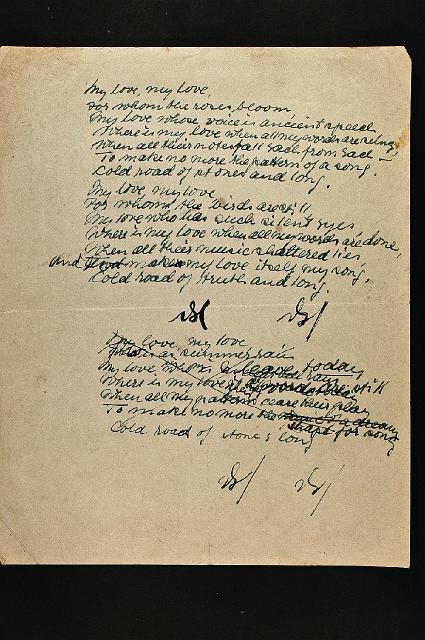 My love, my love,
For whom the roses bloom
My love whose voice is ancient speech
Where is my love when all my words are
When all their notes fall each from each
To make no more the pattern of a song.
Cold road of stones and long.
My love, my love
For whom the birds are still
My love who has such silent eyes
Where is my love when all my words are done,
When all their music shattered lies
And makes my love itself my song,
Cold road of truth and long.
My love, my love
as summer rain
My love today
Where is my love still
When all my patterns cease their play
To make no more the shape for song
Cold road of stones long